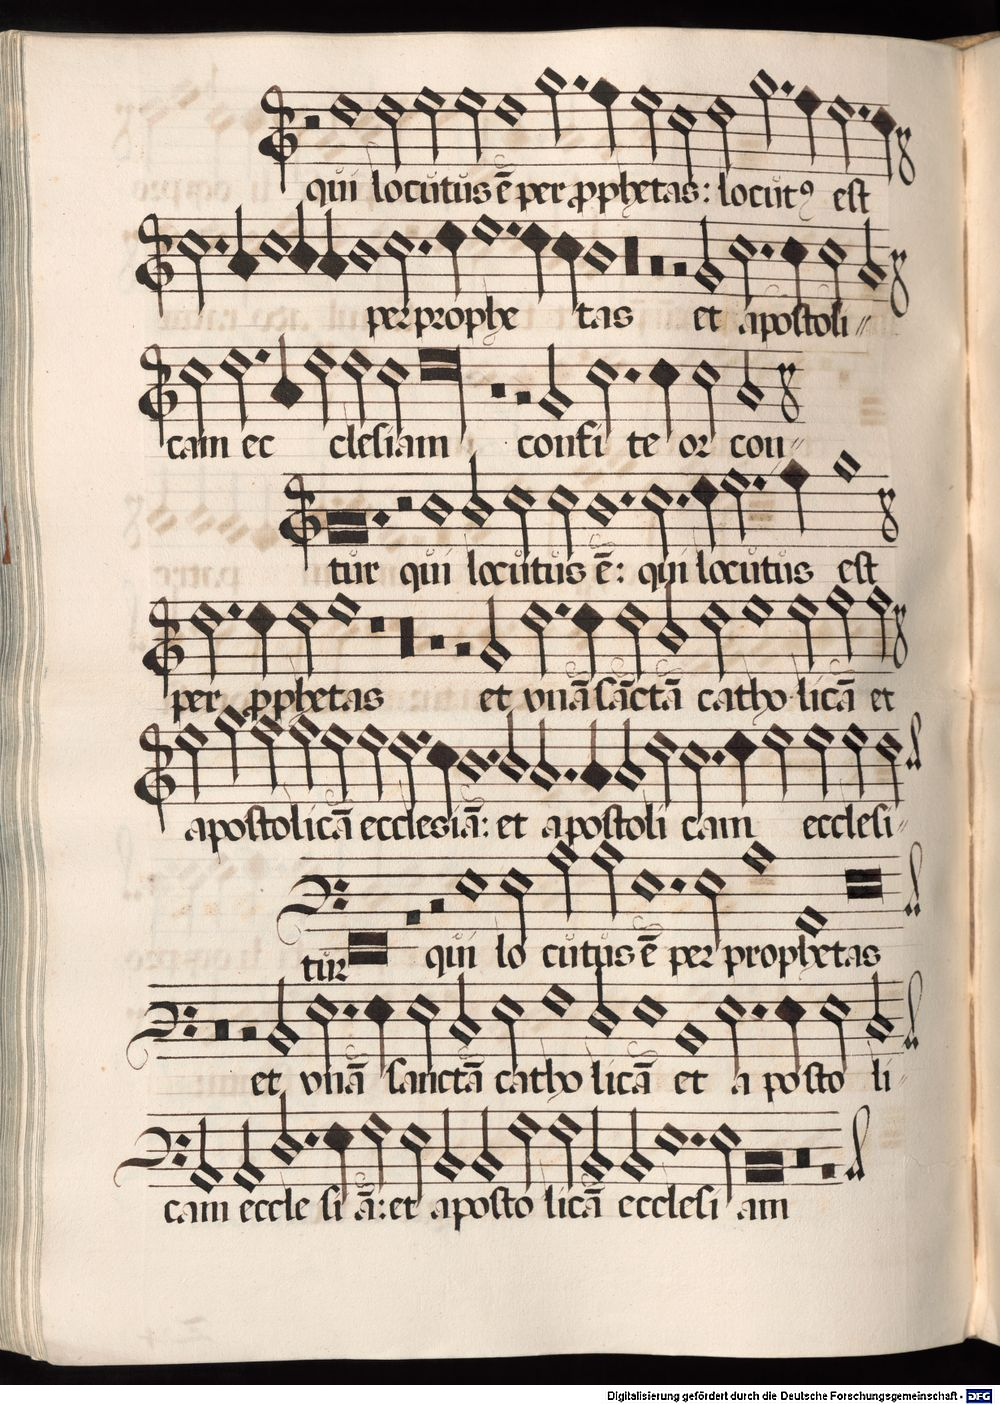 qui locutus ē per ꝓphetas: locutꝰ est
per prophe tas et apostoli〃
cam ec clesiam confi te or con〃
tur qui locutus ē: qui locutus est
per ꝓphetas et vnā sāctā catho licā et
apostolicā ecclesiā: et apostoli cam ecclesi〃
tur qui lo cutus ē per prophetas
et vnā sanctā catho licā et a posto li〃
cam eccle si ā: et aposto licā ecclesi am
Digitalisierung gefördert durch die Deutsche Forschungsgemeinschaft - DFG